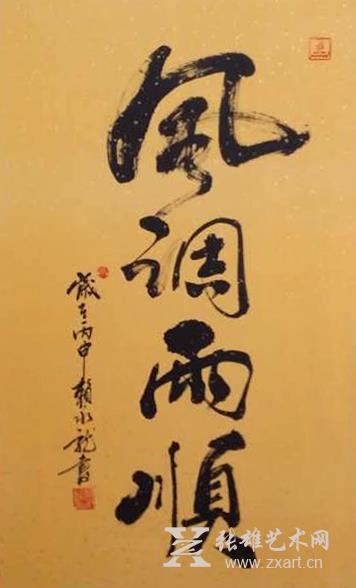 風调雨順
歲在丙申賴水龍書
张雄艺术网
www.zxart.cn